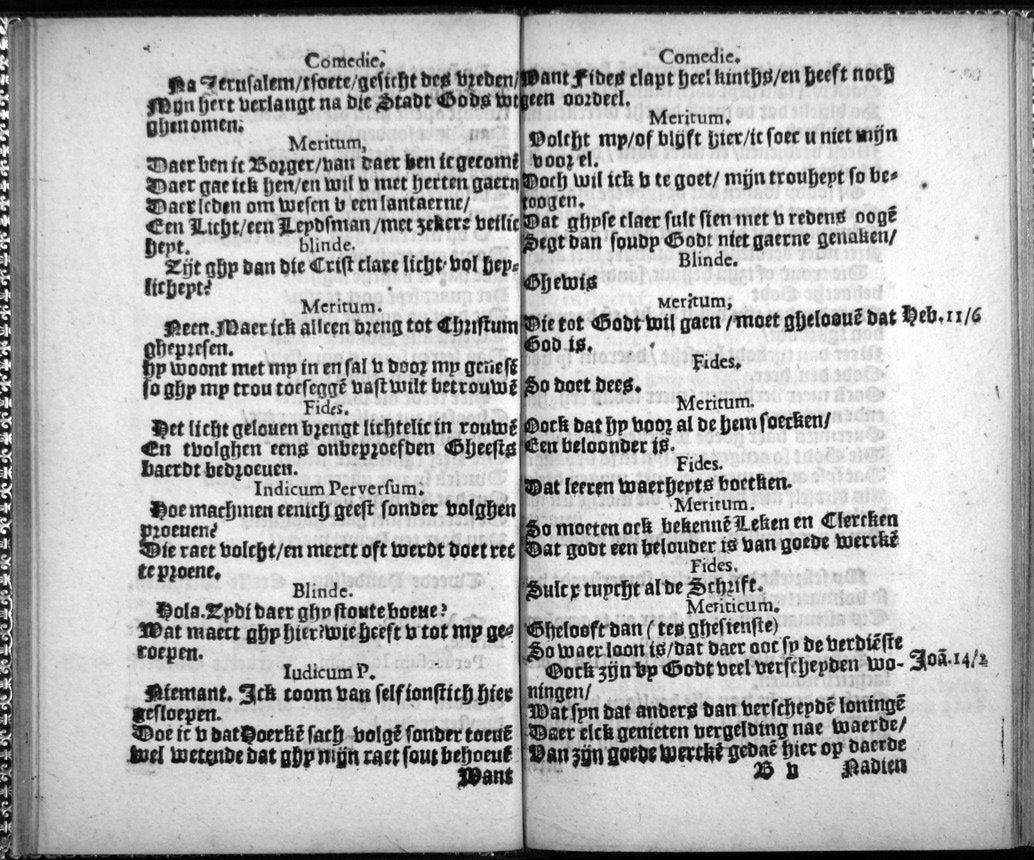 Comedie.
Na Jerusalem/tsoete/gesicht des vreden/
Mijn hert verlangt na die Stadt Gods wt
ghenomen.
Meritum,
Daer ben ic Borger/van daer ben ic gecomē
Daer gae ick hen/en wil v met herten gaern
Daer leden om wesen v een lantaerne/
Een Licht/een Leydsman/met zekere veilic
heyt.
blinde.
Zijt ghy dan die Crist clare licht vol hey-
licheyt?
Meritum.
Neen. Maer ick alleen breng tot Christum
ghepresen.
Hy woont met my in en sal v door my genesē
so ghy my trou toeseggē vast wilt betrouwē
Fides.
Het licht gelouen brengt lichtelic in rouwē
En tvolghen eens onbeproefden Gheests
baerdt bedroeuen.
Iudicum Perversum.
Hoe machmen eenich geest sonder volghen
proeuen?
Die raet volcht/en merct oft werdt doet rec
te proene.
Blinde.
Hola. Zydi daer ghy stoute boeue?
Wat maect ghy hier? wie heeft v tot my ge-
roepen.
Iudicum P.
Niemant. Ick coom van self ionstich hier
gesloepen.
Doe ic v dat Hoerkē sach volgē sonder toeuē
wel wetende dat ghy mijn raet sout behoeuē
Want
Comedie.
Want Fides clapt heel kinths/en heeft noch
geen oordeel.
Meritum.
Volcht my/of blijft hier/ic soec u niet mijn
voor el.
Doch wil ick v te goet/ mijn trouheyt so be-
toogen.
Dat ghyse claer sult sien met v redens oogē
Segt dan soudy Godt niet gaerne genaken/
Blinde.
Ghewis
Meritum,
Die tot Godt wil gaen /moet gheloouē dat Heb. 11/6
God is.
Fides.
So doet dees.
Meritum.
Oock dat hy voor al de hem soecken/
Een beloonder is.
Fides.
Dat leeren waerheyts boecken.
Meritum.
So moeten ock bekennē Leken en Clercken
Dat godt een belouder is van goede werckē
Fides.
Sulcx tuycht al de Schrift.
Meriticum.
Ghelooft dan (tes ghesienste)
So waer loon is/dat daer oot sy de verdiēste
Oock zijn by Godt veel verscheyden wo- Joā. 14/2
ningen/
Wat syn dat anders dan verscheydē loningē
Daer elck genieten vergelding nae waerde/
Van zijn goede werckē gedaē hier op daerde
B v Nadien